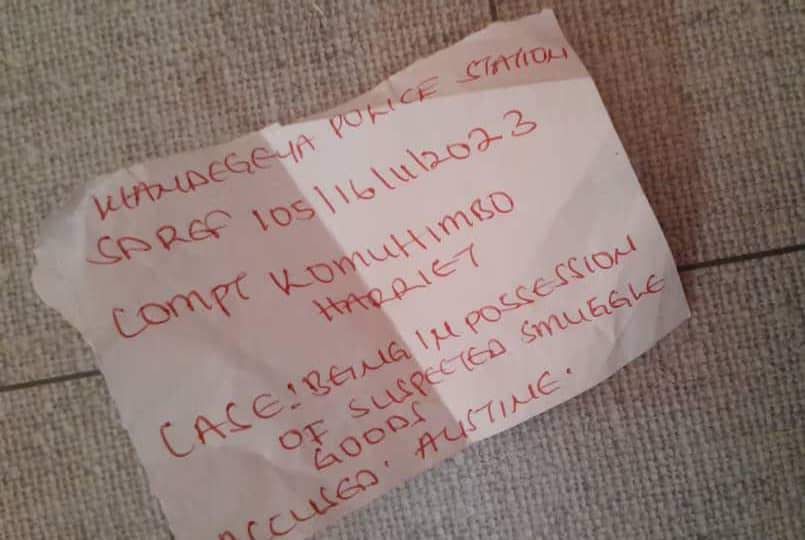 WANDEGEYA POLICE STATION
SDREF 105/16/11/2023
COMPT KOMUHIMBO
HARRIET
CASE: BEING IN POSSESSION
OF SUSPECTED SMUGGLE
GOODS
ACCUSED: AUSTINE.